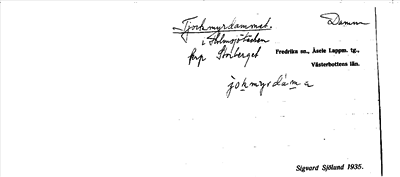 Tjockmyrdammet.
Damm
i Holmsjöbäcken
Krp Storberget
Fredrika sn., Åsele Lappm. tg.,
Västerbottens län.
jokmyrdáma
Sigvard Sjölund 1935.